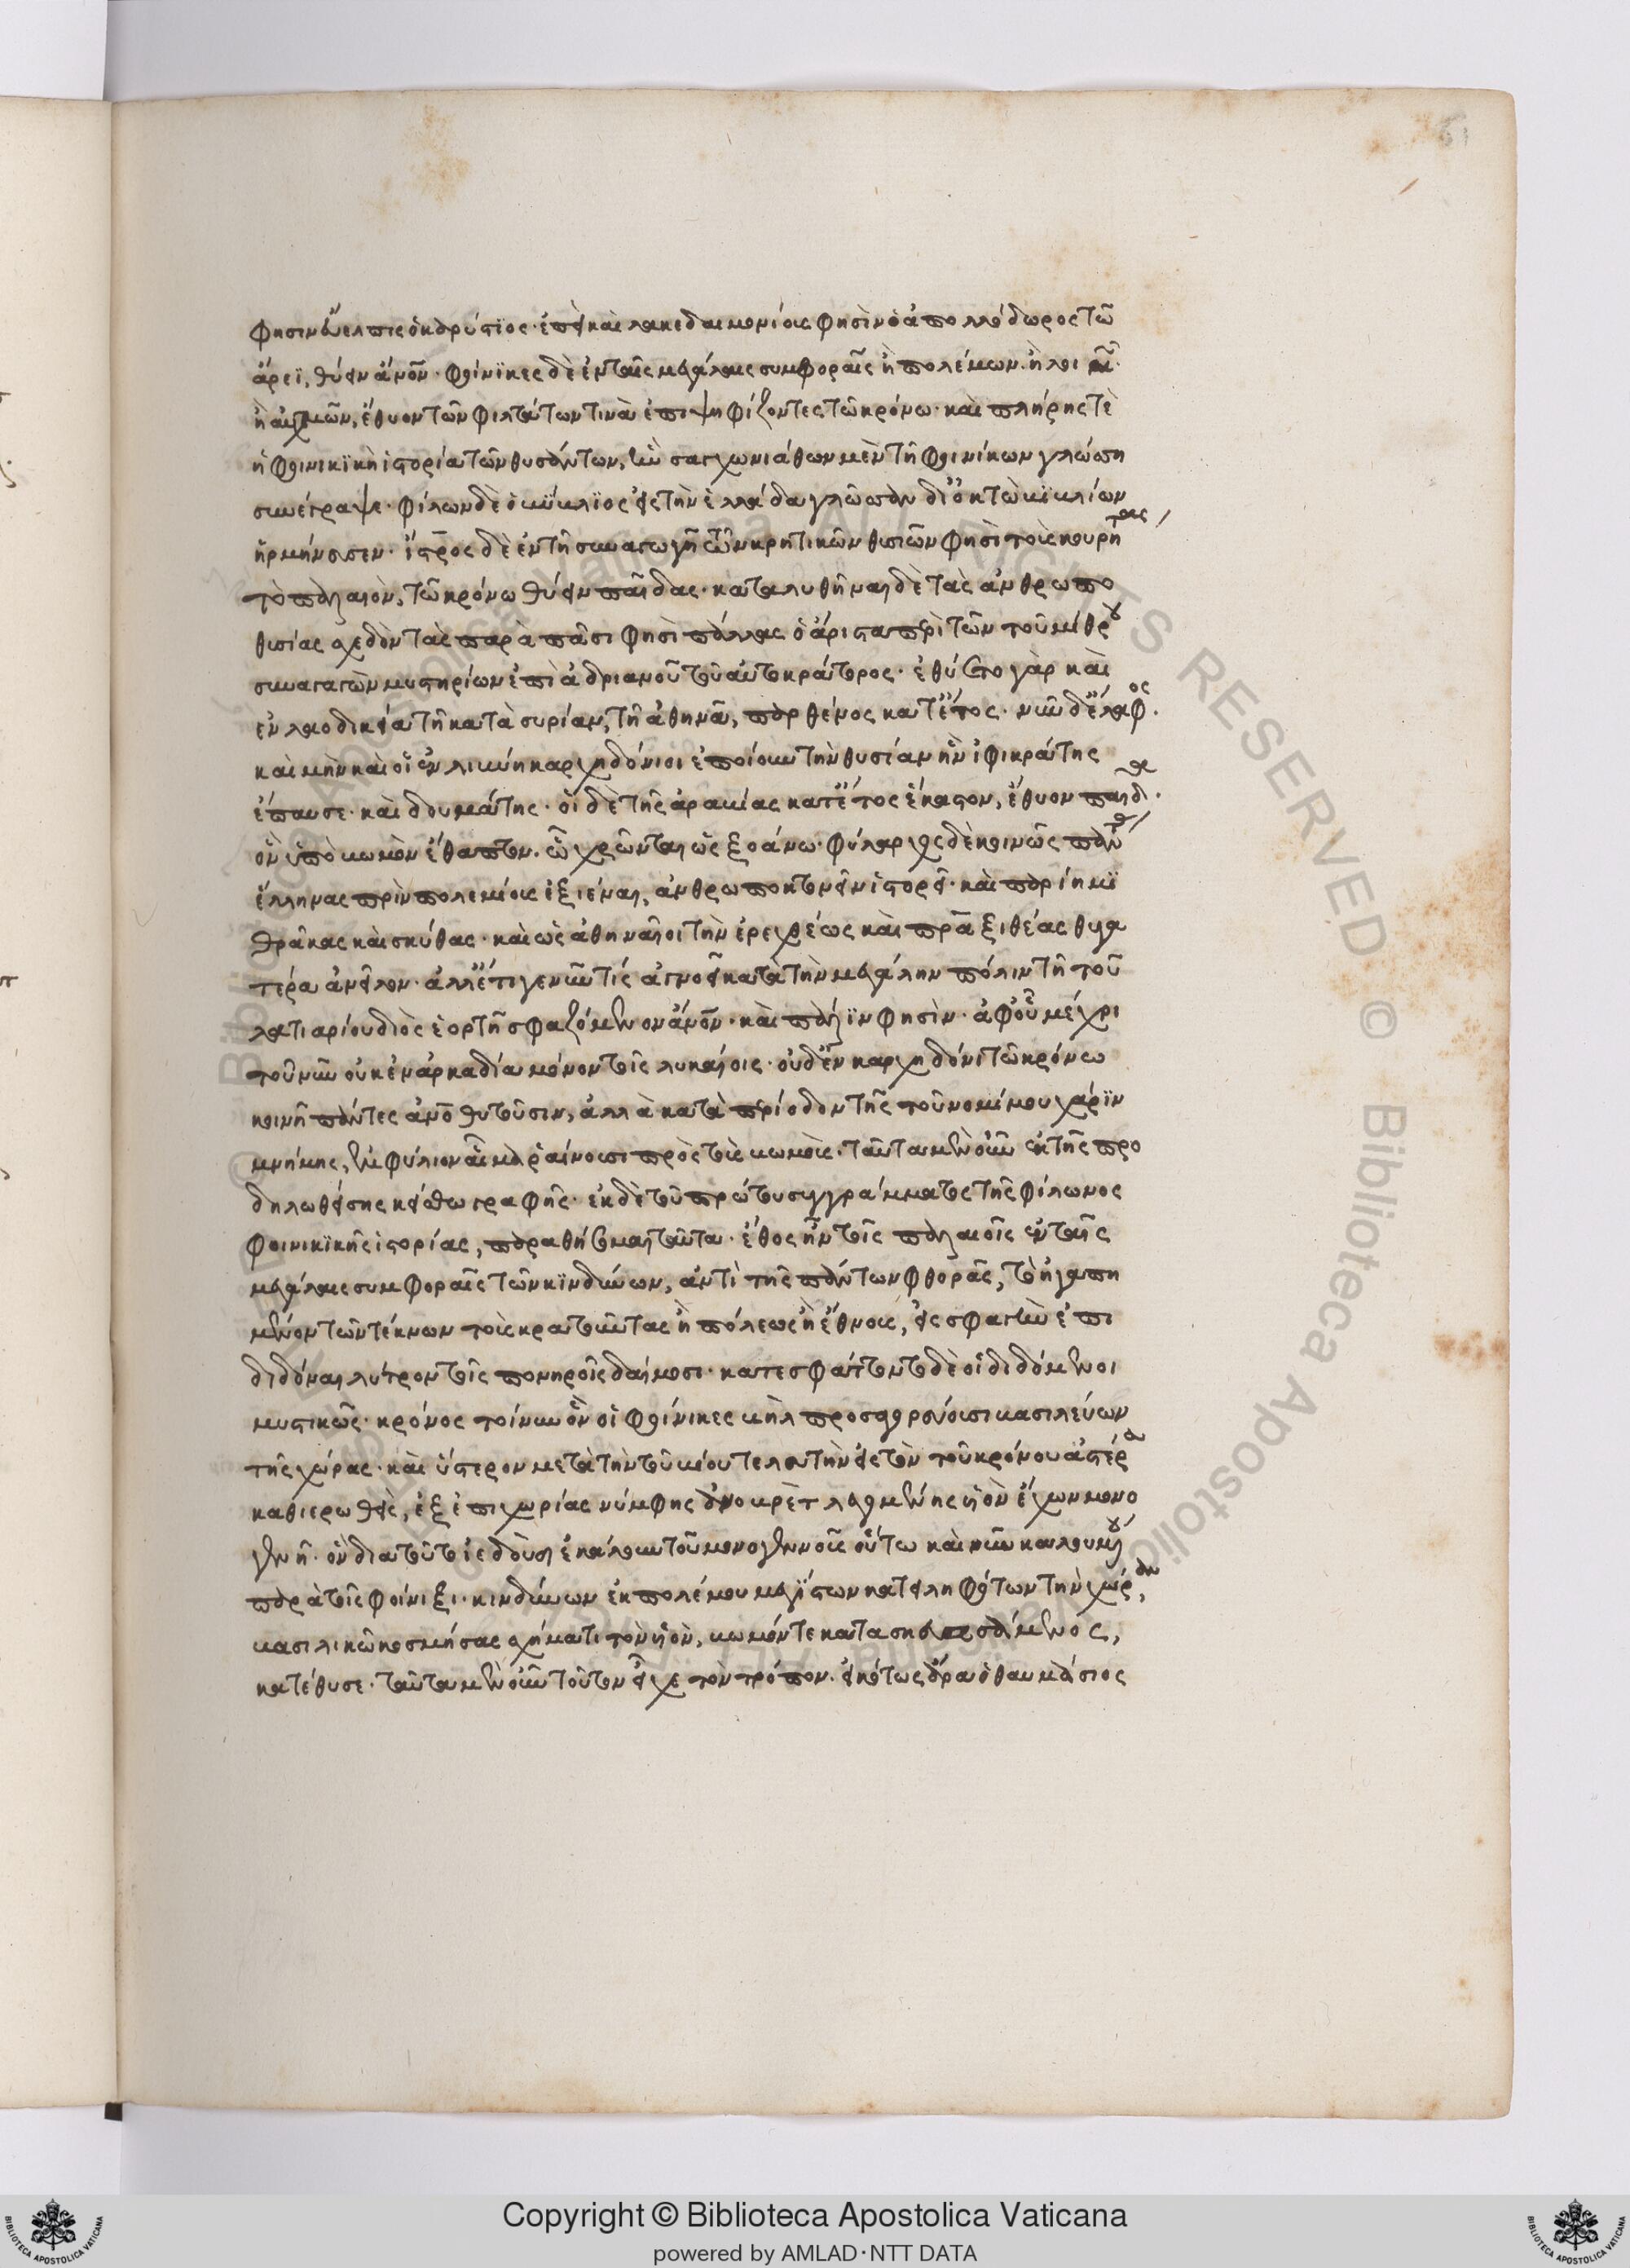 φησιν εὔελπις ὁ καρύστϊος· ἐπεὶ καὶ λακεδαιμονίους φησὶν ὁ ἀπολλόδωρος τῶ
ἄρεϊ, θύειν ἄνον· φοίνϊκες δὲ ἐν ταῖς μεγάλαις συμφοραῖς ἢ πολέμων. ἢ λοιμῶν
ἢ αὐχμῶν, ἔθυον τῶν φιλτάτων τινὰ ἐπιψηφίζοντες τῶ κρόνω· καὶ πλήρης τὲ
ἡ φοινικϊκὴ ἱστορία τῶν θυσάντων, ἣν σαγχωνιάθων μὲν τῆ φοινίκων γλώττη
συνέγραψε· φίλων δὲ ὁ βύβλϊος εἰς τὴν ἑλλάδα γλῶτταν δι' ὀκτὼ βϊβλίων
ἡρμήνευσεν· ἴστρος δὲ ἐν τῆ συναγωγῆ τῶν κρητικῶν θυσιῶν φησὶ τοὺς κουρῆτας
τὸ παλαιὸν, τῶ κρόνω θύειν παῖδας· καταλυθῆναι δὲ τὰς ἀνθρωπο
θυσίας σχεδὸν τὰς παρὰ πᾶσι φησὶ πάλλας ὁ ἄριστα περὶ τῶν τοῦ μίθρου
συναγαγὼν μυστηρίων ἐπὶ ἀδριανοῦ τοῦ αὐτοκράτορος· ἐθύετο γὰρ καὶ
ἐν λαοδικεία τῆ κατὰ συρίαν, τῆ ἀθηνᾶ, παρθένος κατ' ἔτος· νῦν δὲ ἔλαφος.
καὶ μὴν καὶ οἱ ἐν λιβύη καρχηδόνιοι ἐποίουν τὴν θυσίαν ἣν ἰφικράτης
ἔπαυσε· καὶ δουμάτης· οἱ δὲ τῆς ἀραβίας κατ' ἔτος ἕκαστον, ἔθυον παῖδα.
ὃν ὑπὸ βωμὸν ἔθαπτον. ὧ χρῶνται ὡς ξοάνω· φύλαρχος δὲ κοινῶς πάντας
ἕλληνας πρὶν πολεμίους ἐξιέναι, ἀνθρωποκτονεῖν ἱστορεῖ· καὶ παρίημϊ
θρᾶκας καὶ σκύθας· καὶ ὡς ἀθηναῖοι τὴν ἐρεχθέως καὶ πραξιθέας θυγα
τέρα ἀνεῖλον· ἀλλ' ἔτι γε νῦν τίς ἀγνοεῖ κατὰ τὴν μεγάλην πόλιν τῆ τοῦ
λατιαρίου διὸς ἑορτῆ σφαζόμενον ἄνον· καὶ πάλϊν φησὶν· ἀφ' οὗ μέχρι
τοῦ νῦν οὐκ ἐν ἀρκαδία μόνον τοῖς λυκαίοις· οὐδ' ἐν καρχηδόνι τῶ κρόνω
κοινῆ πάντες ἀνοθυτοῦσιν, ἀλλὰ κατὰ περίοδον τῆς τοῦ νομίμου χάρϊν
μνήμης, ἐμφύλιον αἷμα ῥαίνουσι πρὸς τοὺς βωμοὺς· ταῦτα μὲν οὖν ἐκ τῆς προ
δηλωθείσης κείσθω γραφῆς· ἐκ δὲ τοῦ πρώτου συγγράμματος τῆς φίλωνος
φοινικϊκῆς ἱστορίας, παραθήσομαι ταῦτα· ἔθος ἦν τοῖς παλαιοῖς ἐν ταῖς
μεγάλαις συμφοραῖς τῶν κϊνδύνων, ἀντὶ τῆς πάντων φθορᾶς, τὸ ἠγαπη
μένον τῶν τέκνων τοὺς κρατοῦντας ἢ πόλεως ἢ ἔθνους, εἰς σφαγὴν ἐπι
διδόναι λύτρον τοῖς πονηροῖς δαίμοσι· κατεσφάττοντο δὲ οἱ διδόμενοι
μυστικῶς· κρόνος τοίνυν ὃν οἱ φοίνικες ἢλ προσαγορεύουσι βασιλεύων
τῆς χώρας· καὶ ὕστερον μετὰ τὴν τοῦ βίου τελευτὴν εἰς τὸν τοῦ κρόνου ἀστέρα
καθιερωθεὶς, ἐξ ἐπιχωρίας νύμφης ἀνοβρὲτ λεγομένης υἱὸν ἔχων μονο
γενῆ· ὃν διὰ τοῦτο ἰεδοὺδ ἐκάλουν τοῦ μονογενοῦς οὕτω καὶ νῦν καλουμένου
παρὰ τοῖς φοίνιξι· κινδύνων ἐκ πολέμου μεγίστων κατειληφότων τὴν χώραν,
βασιλικῶ κοσμήσας σχήματι τὸν υἱὸν, βωμόν τε κατασκευασάμενος,
κατέθυσε· ταῦτα μὲν οὖν τοῦτον εἶχε τὸν τρόπον. εἰκότως ἄρα ὁ θαυμάσιος
Copyright © Biblioteca Apostolica Vaticana
powered by AMLAD·NTT DATA